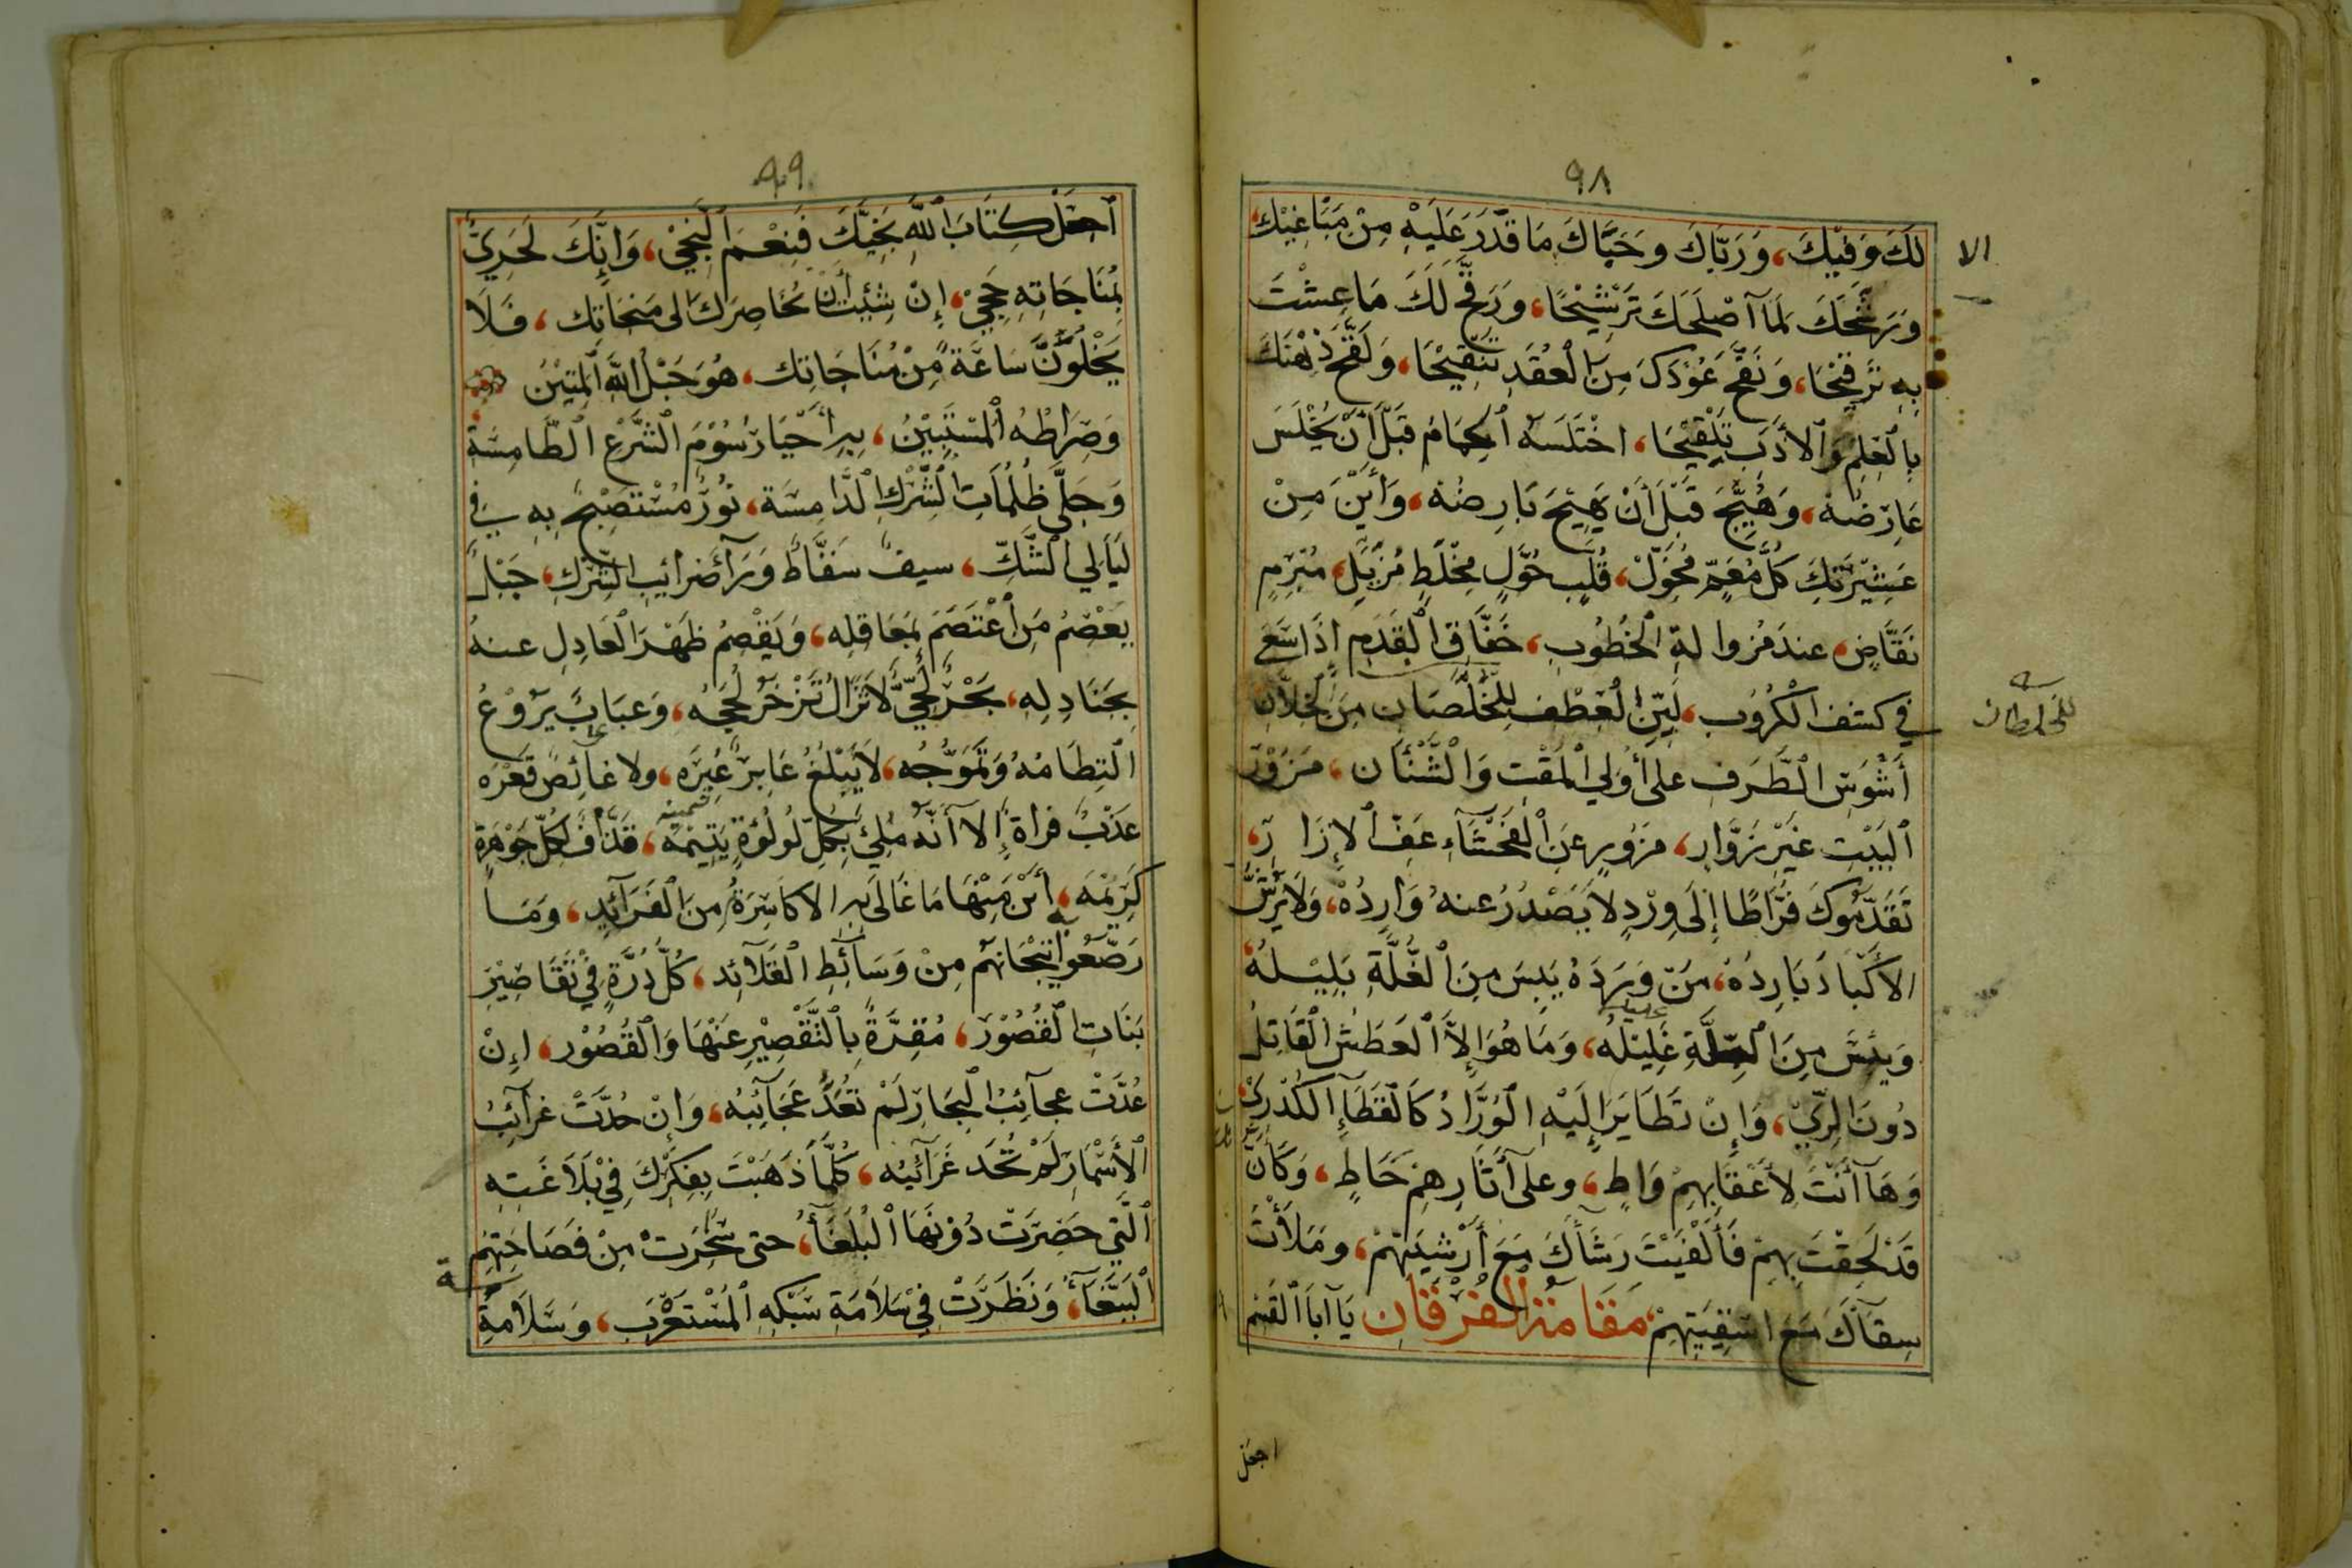 ٩٨
لَكَ وَفِيْكَ، وَرَبَّاكَ وَحَيَّاكَ مَا قَدَرَ عَلَيْهِ مِنْ مَبَاغِيْكَ
الا
وَرَشَّحَكَ لِمَا أَصْلَحَكَ تَرْشِيْحًا، وَرَقَّحَ لَكَ مَا عِشْتَ
بِهِ تَرقِيْحَا، وَنَقَّحَ عُوْدَكَ مِنَ الْعُقَدِ تَنْقِيْحَا، وَلَقَّحَ ذِهْنَكَ
بِالْعِلمِ وَالأَدَبِ تَلْقِيْحَا، اخْتَلَسَهُ الحِمَامُ قَبْلَ أَنْ يُخْلَسَ
عَارِضَهُ، وَهُيِّجَ قَبْلَ أَنْ يَهِيْجَ بَارِضُهُ، وَأَيْنَ مِنْ
عَشِيْرَتِكَ كُلُّ مُعَمٍّ مُخْوَلٍ، قُلَّبٍ حُوَّلٍ مِخْلَطٍ مُزَيِّلٍ، مُبْرِمٍ
نَقَّاضٍ، عند مُزاولةِ الخُطُوبِ، خَفَّاقِ الْقَدَمِ إِذَا سَعَى
في كشف الْكُرُوبِ، لَيِّنِ الْعِطْفِ لِلْخُلْصَانِ مِنَ الْخِلَّانِ
للخلطان
أَشْوَسِ الطَّرَفِ على أُوْلي الْمَقْتِ وَالشَّنْأَن، مَزُوْرَ
البَيْتِ غَيْرِ زَوَّارٍ، مُزْوَرٍّ عَنِ الْفَحْشَآءِ عَفِّ الإِزَارِ،
تَقَدَّمُوكَ فُرَّاطًا إِلَى وِرْدٍ لَا يَصْدُرُ عنهُ وَارِدُهُ، وَلَا يَرُشُّ
الأَكْبَادَ بَارِدُهُ، مَنْ وَرَدَهُ يَبِسَ مِنَ الغُلَّةِ بَلِيْلُهُ
وَيَئِسَ مِنَ غَلِيْلُهُ، وَمَا هُوَ إِلاَّ الْعَطَشُ الْقَاتِلُ
دُونَ الرِّيِّ، وَإِنْ تَطَايَرَ إِلَيْهِ الْوُرَّادُ كَالْقَطَا الكُدْرِيِّ،
وَهَآ أَنْتَ لأَعْقَابِهِمْ وَاطٍ، وعلى آثَارِهِمْ خَاطٍ، وَكَأَنْ
قَدْ لَحِقْتَ بِهِمْ فَأَلْقَيْتَ رِشَآءَكَ مَعَ أَرْشِيَتِهِمْ، ومَلَأْتَ
سِقآءَكَ مع اسْقِيَتِهِمْ، مَقَامَةُ الْفُرْقَانِ يَآ أبَا القَسِم
اجعل
٩٩
اجعَلْ كِتَابَ اللهِ نَجِيَّكَ فَنِعْمَ النَّجِيْ، وَإِنَّكَ لَحَرِيٌّ
بُمنَاجَاتِهِ حَجِيْ، إِنْ شِئْتَ أن تُحَاصِرَكَ الى مَنجَاتِك، فَلَا
يَخْلُوَنَّ سَاعَةً مِّنْ مُنَاجَاتِك، هُوَ حَبْلُ اللهِ الْمَتِيْنُ
وَصِرَاطُهُ الْمُسْتَبِيْنُ، بِهِ أَحْيَا رُسُوْمَ الشَّرْعِ الطَّامِسَةِ
وَجَلَّى ظُلُمَاتِ الشِّرْكِ الدَّامِسَة، نُورٌ مُسْتَصْبَحٌ بِهِ فِي
لَيَالِي الشَّكِّ، سيفٌ سَقَّاطٌ وَرَآءَ ضَرائِبِ الشِّرْكِ، جَبَلٌ
يَعْصِمُ مَنِ اعْتَصَمَ بَمَعَاقِلِه، وَيَقْصِمُ ظَهْرَ الْعَادِلِ عنهُ
بِجَنَادِلِهِ، بَحْرٌ لُجِّيٌّ لَا تَزَالُ تَزْخَرُ لُجَجُهُ، وَعُبَابٌ يَرُوْعُ
الْتِطَامُهُ وَتَمَوُّجُه، لَا يَبْلُغُ عَابِرٌ عَبْرَه، ولا غَائِصٌ قَعْرَه
عَذْبٌ فراتٌ إِلا أَنَّهُ مُلِئَ بِكُلِّ لُولُؤةٍ يَتِيْمَة ثمينة، قَذَّافٌ لكُلِّ جَوْهَرَةٍ
كَرِيْمَة، أَيْنَ مِنْهَا مَا غَالَى بِهِ الاكَاسِرَةُ مِنَ الْفَرَآئِدِ، وَمَا
رَصَّعُوا بِهِ تِيْجَانَهُمْ مِنْ وَسَآئِطِ الْقَلَآئِد، كُلُّ دُرَّةٍ فِي تَقَاصِيْرَ
بَنَاتِ القُصُوْر، مُقِرَّةٌ بِالتَّقْصِيْرِ عَنْهَا وَالْقُصُوْر، إِنْ
عُدَّتْ عجآئِبُ البِحَارِ لَمْ تُعَدَّ عَجَآئِبُه، وَإِنْ حُدَّتْ غرآئِبُ
الأَسْمَارِ لَمْ تُحَد غَرَآئِبُه، كُلَّمَا ذَهَبْتَ بِفِكْرِكَ فِي بَلَاغَتِهِ
الَّتِي حَضِرَتْ دُوْنَهَا البُلَغَآءُ، حتى سَخِرَتْ مِنْ فَصَاحَتِهِمِ
الْبَبَّغَآءُ، وَنَظَرْتَ فِي سَلَامَةِ سَبْكِهِ الْمُسْتَغْرَبِ، وَسَلَامَةِ